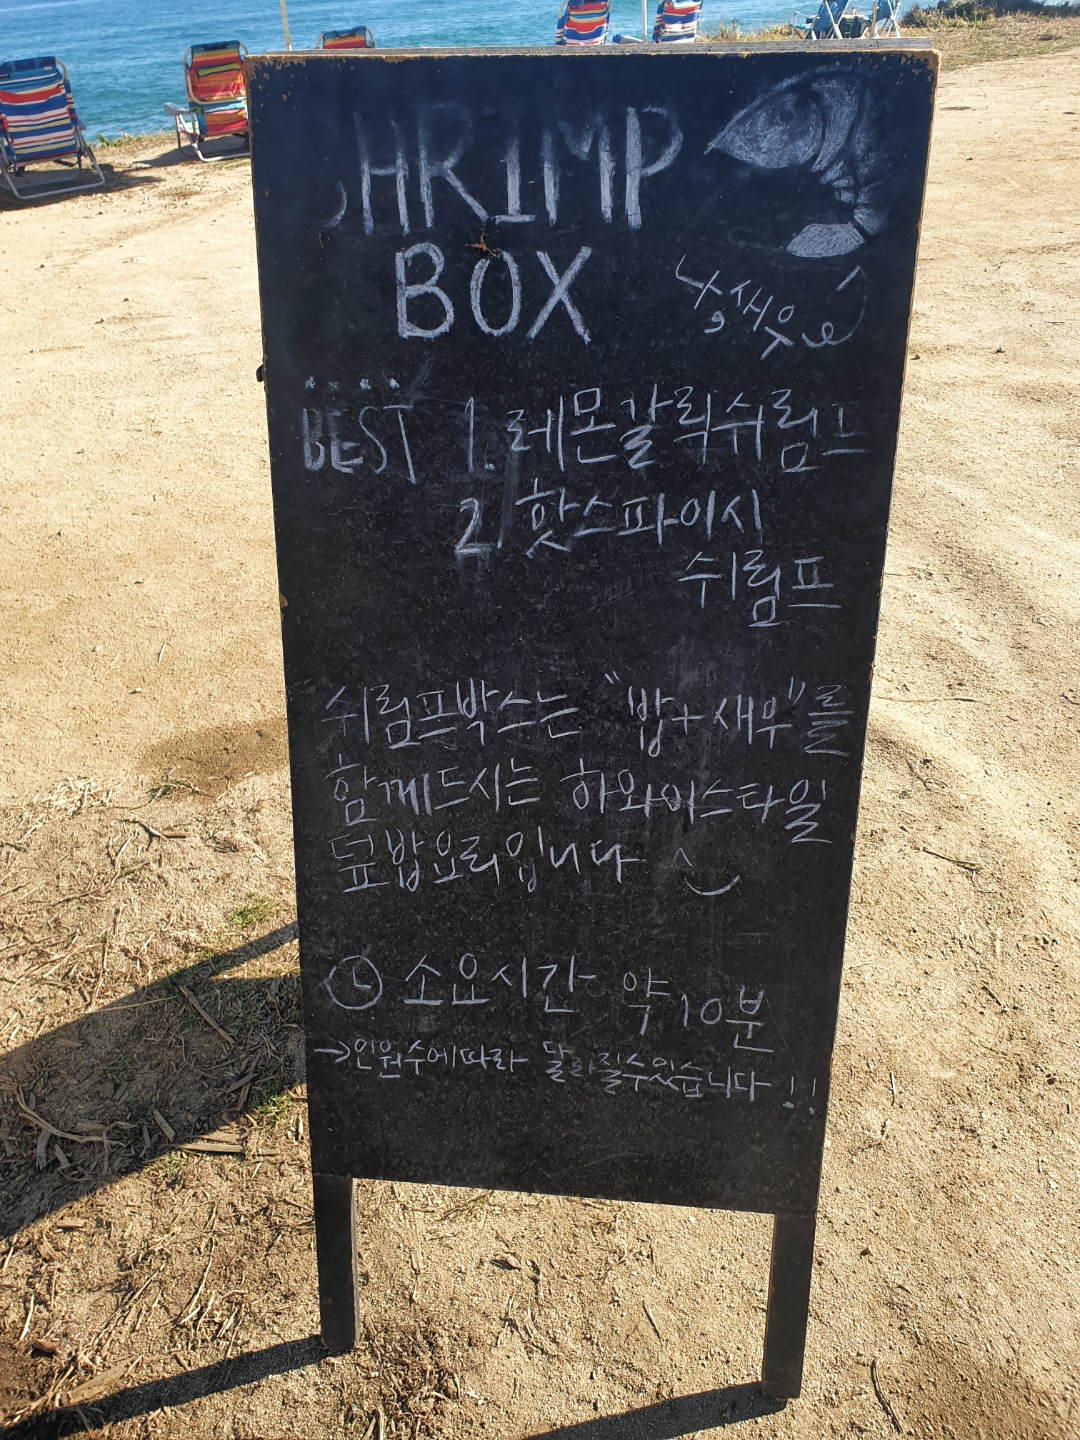 SHRIMP
BOX
낭새우
BEST 1. 레몬갈릭쉬림프
2. 핫스파이시
쉬림프
쉬림프박스는 "밥+새우"를
함께드시는 하와이스타일
덮밥요리입니다 ^
소요시간 약10분
→인원수에따라 달라질수있습니다!!